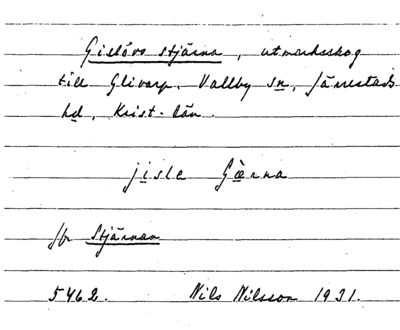 Gislövs stjärna, utmarksskog
till Glivarp. Vallby sn, Järrestads
hd, Krist. län.
jisle
Jfr Stjärnan
5462. Nils Nilsson 1931.